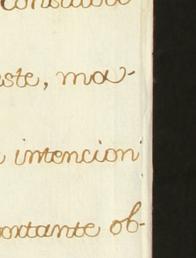 este, ma-
intencion
portante ob-